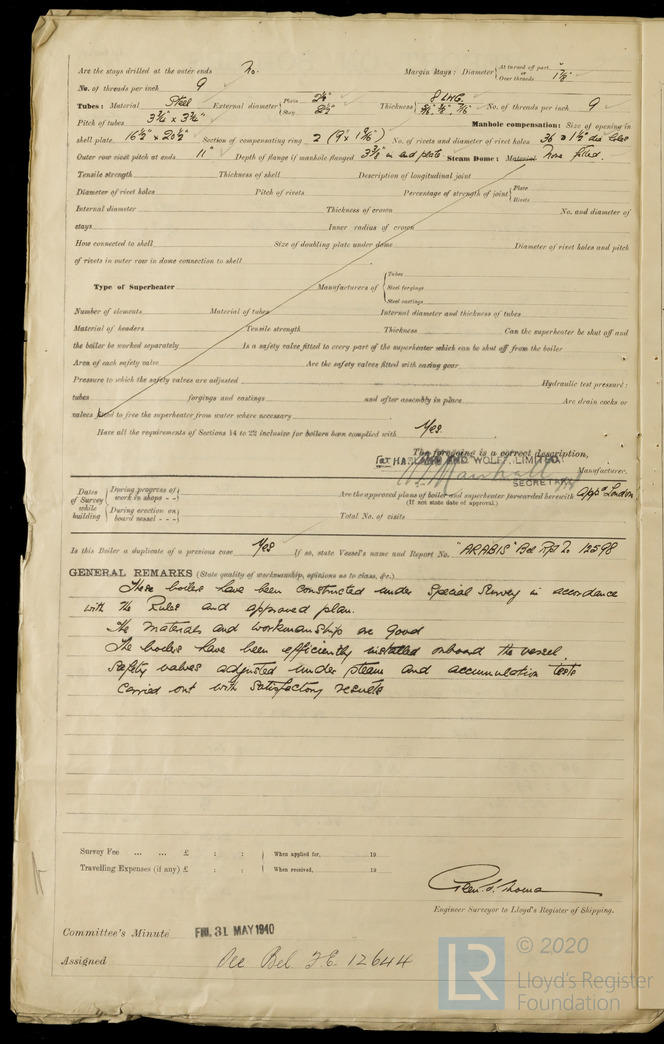 Are the stays drilled at the outer ends No. Margin stays: Diameter { At turned off part, or Over threads 1 7/8"
No. of threads per inch 9
Tubes: Material Steel External diameter { Plain 2½" Stay 2½" Thickness { 8 LWG 5/16 3/8 7/16 No. of threads per inch 9
Pitch of tubes 3¾" x 3¾" Manhole compensation: Size of opening in
shell plate 16½" x 20½" Section of compensating ring 2 (9" x 1 5/16") No. of rivets and diameter of rivet holes 36 @ 1½" dia holes
Outer row rivet pitch at ends 11" Depth of flange if manhole flanged 3⅜" in end plate. Steam Dome: Material None fitted.
Tensile strength Thickness of shell Description of longitudinal joint
Diameter of rivet holes Pitch of rivets Percentage of strength of joint { Plate Rivets
Internal diameter Thickness of crown No. and diameter of
stays Inner radius of crown
How connected to shell Size of doubling plate under dome Diameter of rivet holes and pitch
of rivets in outer row in dome connection to shell
Type of Superheater Manufacturers of { Tubes Steel forgings Steel castings
Number of elements Material of tubes Internal diameter and thickness of tubes
Material of headers Tensile strength Thickness Can the superheater be shut off and
the boiler be worked separately Is a safety valve fitted to every part of the superheater which can be shut off from the boiler
Area of each safety valve Are the safety valves fitted with easing gear
Pressure to which the safety valves are adjusted Hydraulic test pressure:
tubes forgings and castings and after assembly in place Are drain cocks or
valves fitted to free the superheater from water where necessary
Have all the requirements of Sections 14 to 22 inclusive for boilers been complied with Yes
The foregoing is a correct description,
For HARLAND AND WOLFF, LIMITED
Marshall Manufacturer.
SECRETARY
Dates of Survey while building { During progress of work in shops - - Are the approved plans of boiler and superheater forwarded herewith Appd London
(If not state date of approval.)
During erection on board vessel - - - Total No. of visits
Is this Boiler a duplicate of a previous case Yes If so, state Vessel's name and Report No. "ARABIS" Bel Rpt No 12598
GENERAL REMARKS (State quality of workmanship, opinions as to class, &c.)
These boilers have been constructed under Special Survey in accordance
with the Rules and approved plan.
The materials and workmanship are good
The boilers have been efficiently installed onboard the vessel.
Safety valves adjusted under steam and accumulation tests
carried out with satisfactory results
Survey Fee ... ... £ : : When applied for, 19
Travelling Expenses (if any) £ : : When received, 19
Engineer Surveyor to Lloyd's Register of Shipping.
Committee's Minute FRI. 31 MAY 1940
Assigned See Bel F.E. 12644
LR © 2020
Lloyd's Register
Foundation